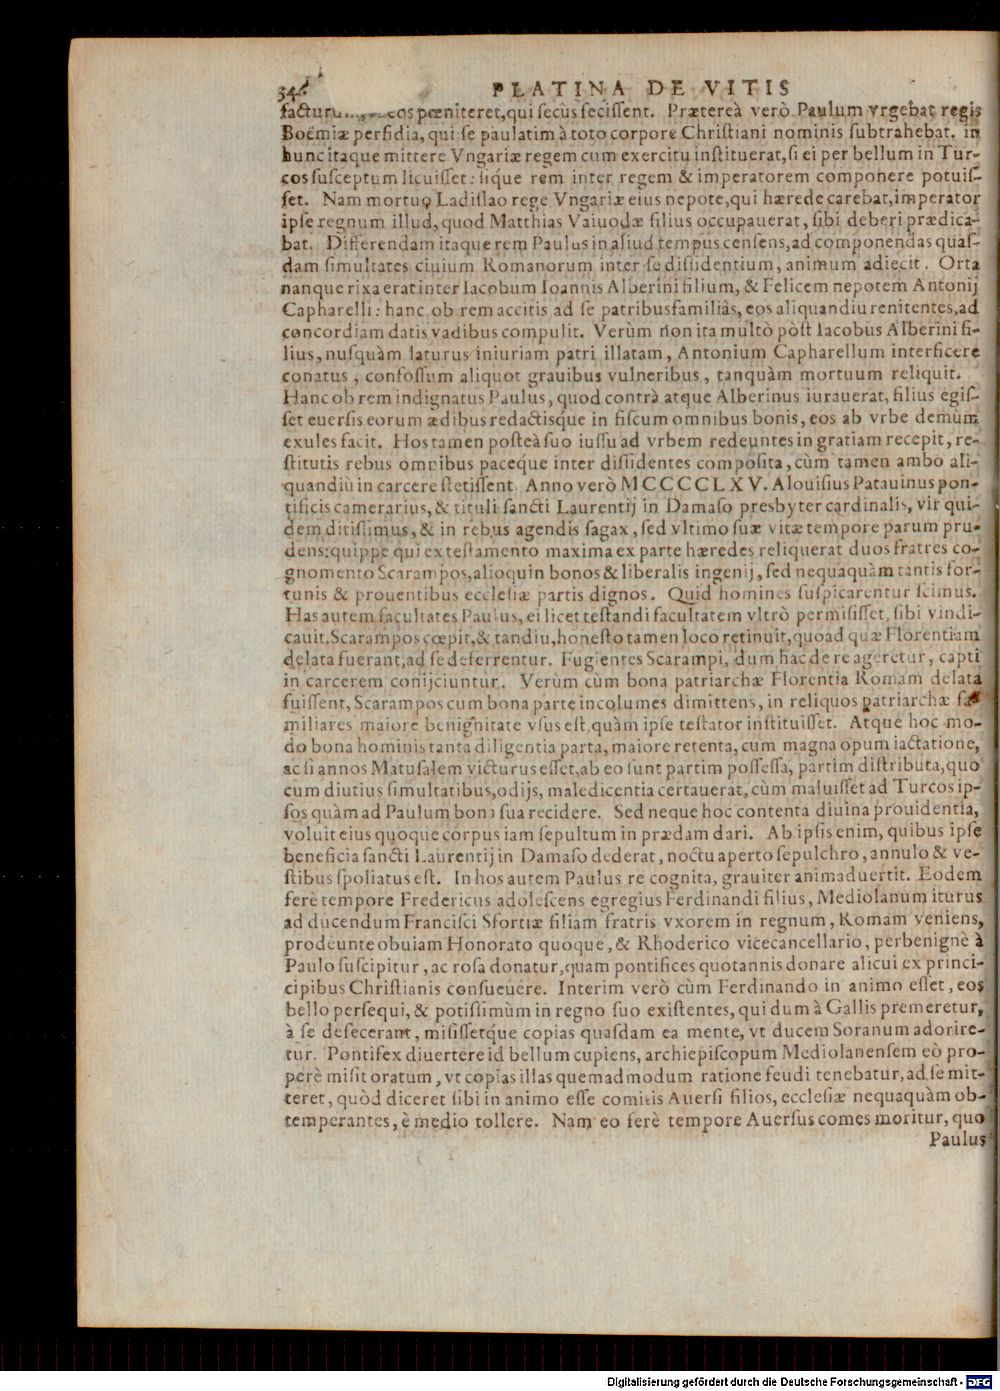 34
PLATINA DE VITIS
facturu cos pœniteret,qui ſecùs feciſſent. Prætereà verò Paulum vrgebat regis
Boëmiæ perfidia, qui ſe paulatim à toto corpore Chriſtiani nominis ſubtrahebat. in
hunc itaque mittere Vngariæ regem cum exercitu inſtituerat,ſi ei per bellum in Tur-
cos ſuſceptum licuiſſet: ſique rem inter regem & imperatorem componere potuiſ-
ſet. Nam mortuo Ladiſlao rege Vngariæ eius nepote,qui hærede carebat,imperator
ipſe regnum illud, quod Matthias Vaiuodæ filius occupauerat, ſibi deberi prædica-
bat. Differendam itaque rem Paulus in aliud tempus cenſens,ad componendas quaſ-
dam ſimultates ciuium Romanorum inter ſe diſſidentium, animum adiecit. Orta
nanque rixa erat inter Iacobum Ioannis Alberini filium, & Felicem nepotem Antonij
Capharelli: hanc ob rem accitis ad ſe patribusfamiliâs, eos aliquandiu renitentes,ad
concordiam datis vadibus compulit. Verùm non ita multò pòſt Iacobus Alberini fi-
lius, nuſquàm laturus iniuriam patri illatam, Antonium Capharellum interficere
conatus, confoſſum aliquot grauibus vulneribus, tanquàm mortuum reliquit.
Hanc ob rem indignatus Paulus, quod contrà atque Alberinus iurauerat, filius egiſ-
ſet euerſis eorum ædibus redactisque in fiſcum omnibus bonis, eos ab vrbe demùm
exules facit. Hos tamen poſteà ſuo iuſſu ad vrbem redeuntes in gratiam recepit, re-
ſtitutis rebus omnibus paceque inter diſſidentes compoſita, cùm tamen ambo ali-
quandiù in carcere ſtetiſſent. Anno verò MCCCCLXV. Alouiſius Patauinus pon-
tificis camerarius, & tituli ſancti Laurentij in Damaſo presbyter cardinalis, vir qui-
dem ditiſſimus, & in rebus agendis ſagax, ſed vltimo ſuæ vitæ tempore parum pru-
dens: quippe qui ex teſtamento maxima ex parte hæredes reliquerat duos fratres co-
gnomento Scarampos,alioquin bonos & liberalis ingenij, ſed nequaquàm tantis for-
tunis & prouentibus eccleſiæ partis dignos. Quid homines ſuſpicarentur ſcimus.
Has autem facultates Paulus, ei licet teſtandi facultatem vltrò permiſiſſet, ſibi vindi-
cauit. Scarampos cœpit,& tandiu,honeſto tamen loco retinuit,quoad quæ Florentiam
delata fuerant,ad ſe deferrentur. Fugientes Scarampi, dum hac de re ageretur, capti
in carcerem conijciuntur. Verùm cùm bona patriarchæ Florentia Romam delata
fuiſſent, Scarampos cum bona parte incolumes dimittens, in reliquos patriarchæ fa-
miliares maiore benignitate vſus eſt,quàm ipſe teſtator inſtituiſſet. Atque hoc mo-
do bona hominis tanta diligentia parta, maiore retenta, cum magna opum iactatione,
ac ſi annos Matuſalem victurus eſſet,ab eo ſunt partim poſſeſſa, partim diſtributa,quo
cum diutius ſimultatibus,odijs, maledicentia certauerat, cùm maluiſſet ad Turcos ip-
ſos quàm ad Paulum bona ſua recidere. Sed neque hoc contenta diuina prouidentia,
voluit eius quoque corpus iam ſepultum in prædam dari. Ab ipſis enim, quibus ipſe
beneficia ſancti Laurentij in Damaſo dederat, noctu aperto ſepulchro, annulo & ve-
ſtibus ſpoliatus eſt. In hos autem Paulus re cognita, grauiter animaduertit. Eodem
ferè tempore Fredericus adoleſcens egregius Ferdinandi filius, Mediolanum iturus
ad ducendum Franciſci Sfortiæ filiam fratris vxorem in regnum, Romam veniens,
prodeunte obuiam Honorato quoque, & Rhoderico vicecancellario, perbenignè à
Paulo ſuſcipitur, ac roſa donatur,quam pontifices quotannis donare alicui ex princi-
cipibus Chriſtianis conſueuere. Interim verò cùm Ferdinando in animo eſſet, eos
bello perſequi, & potiſſimùm in regno ſuo exiſtentes, qui dum à Gallis premeretur,
à ſe defecerant, miſiſſetque copias quaſdam ea mente, vt ducem Soranum adorire-
tur. Pontifex diuertere id bellum cupiens, archiepiſcopum Mediolanenſem eò pro-
perè miſit oratum, vt copias illas quemadmodum ratione feudi tenebatur,ad ſe mit-
teret, quòd diceret ſibi in animo eſſe comitis Auerſi filios, eccleſiæ nequaquàm ob-
temperantes, è medio tollere. Nam eo ferè tempore Auerſus comes moritur, quo
Paulus
Digitalisierung gefördert durch die Deutsche Forschungsgemeinschaft - DFG